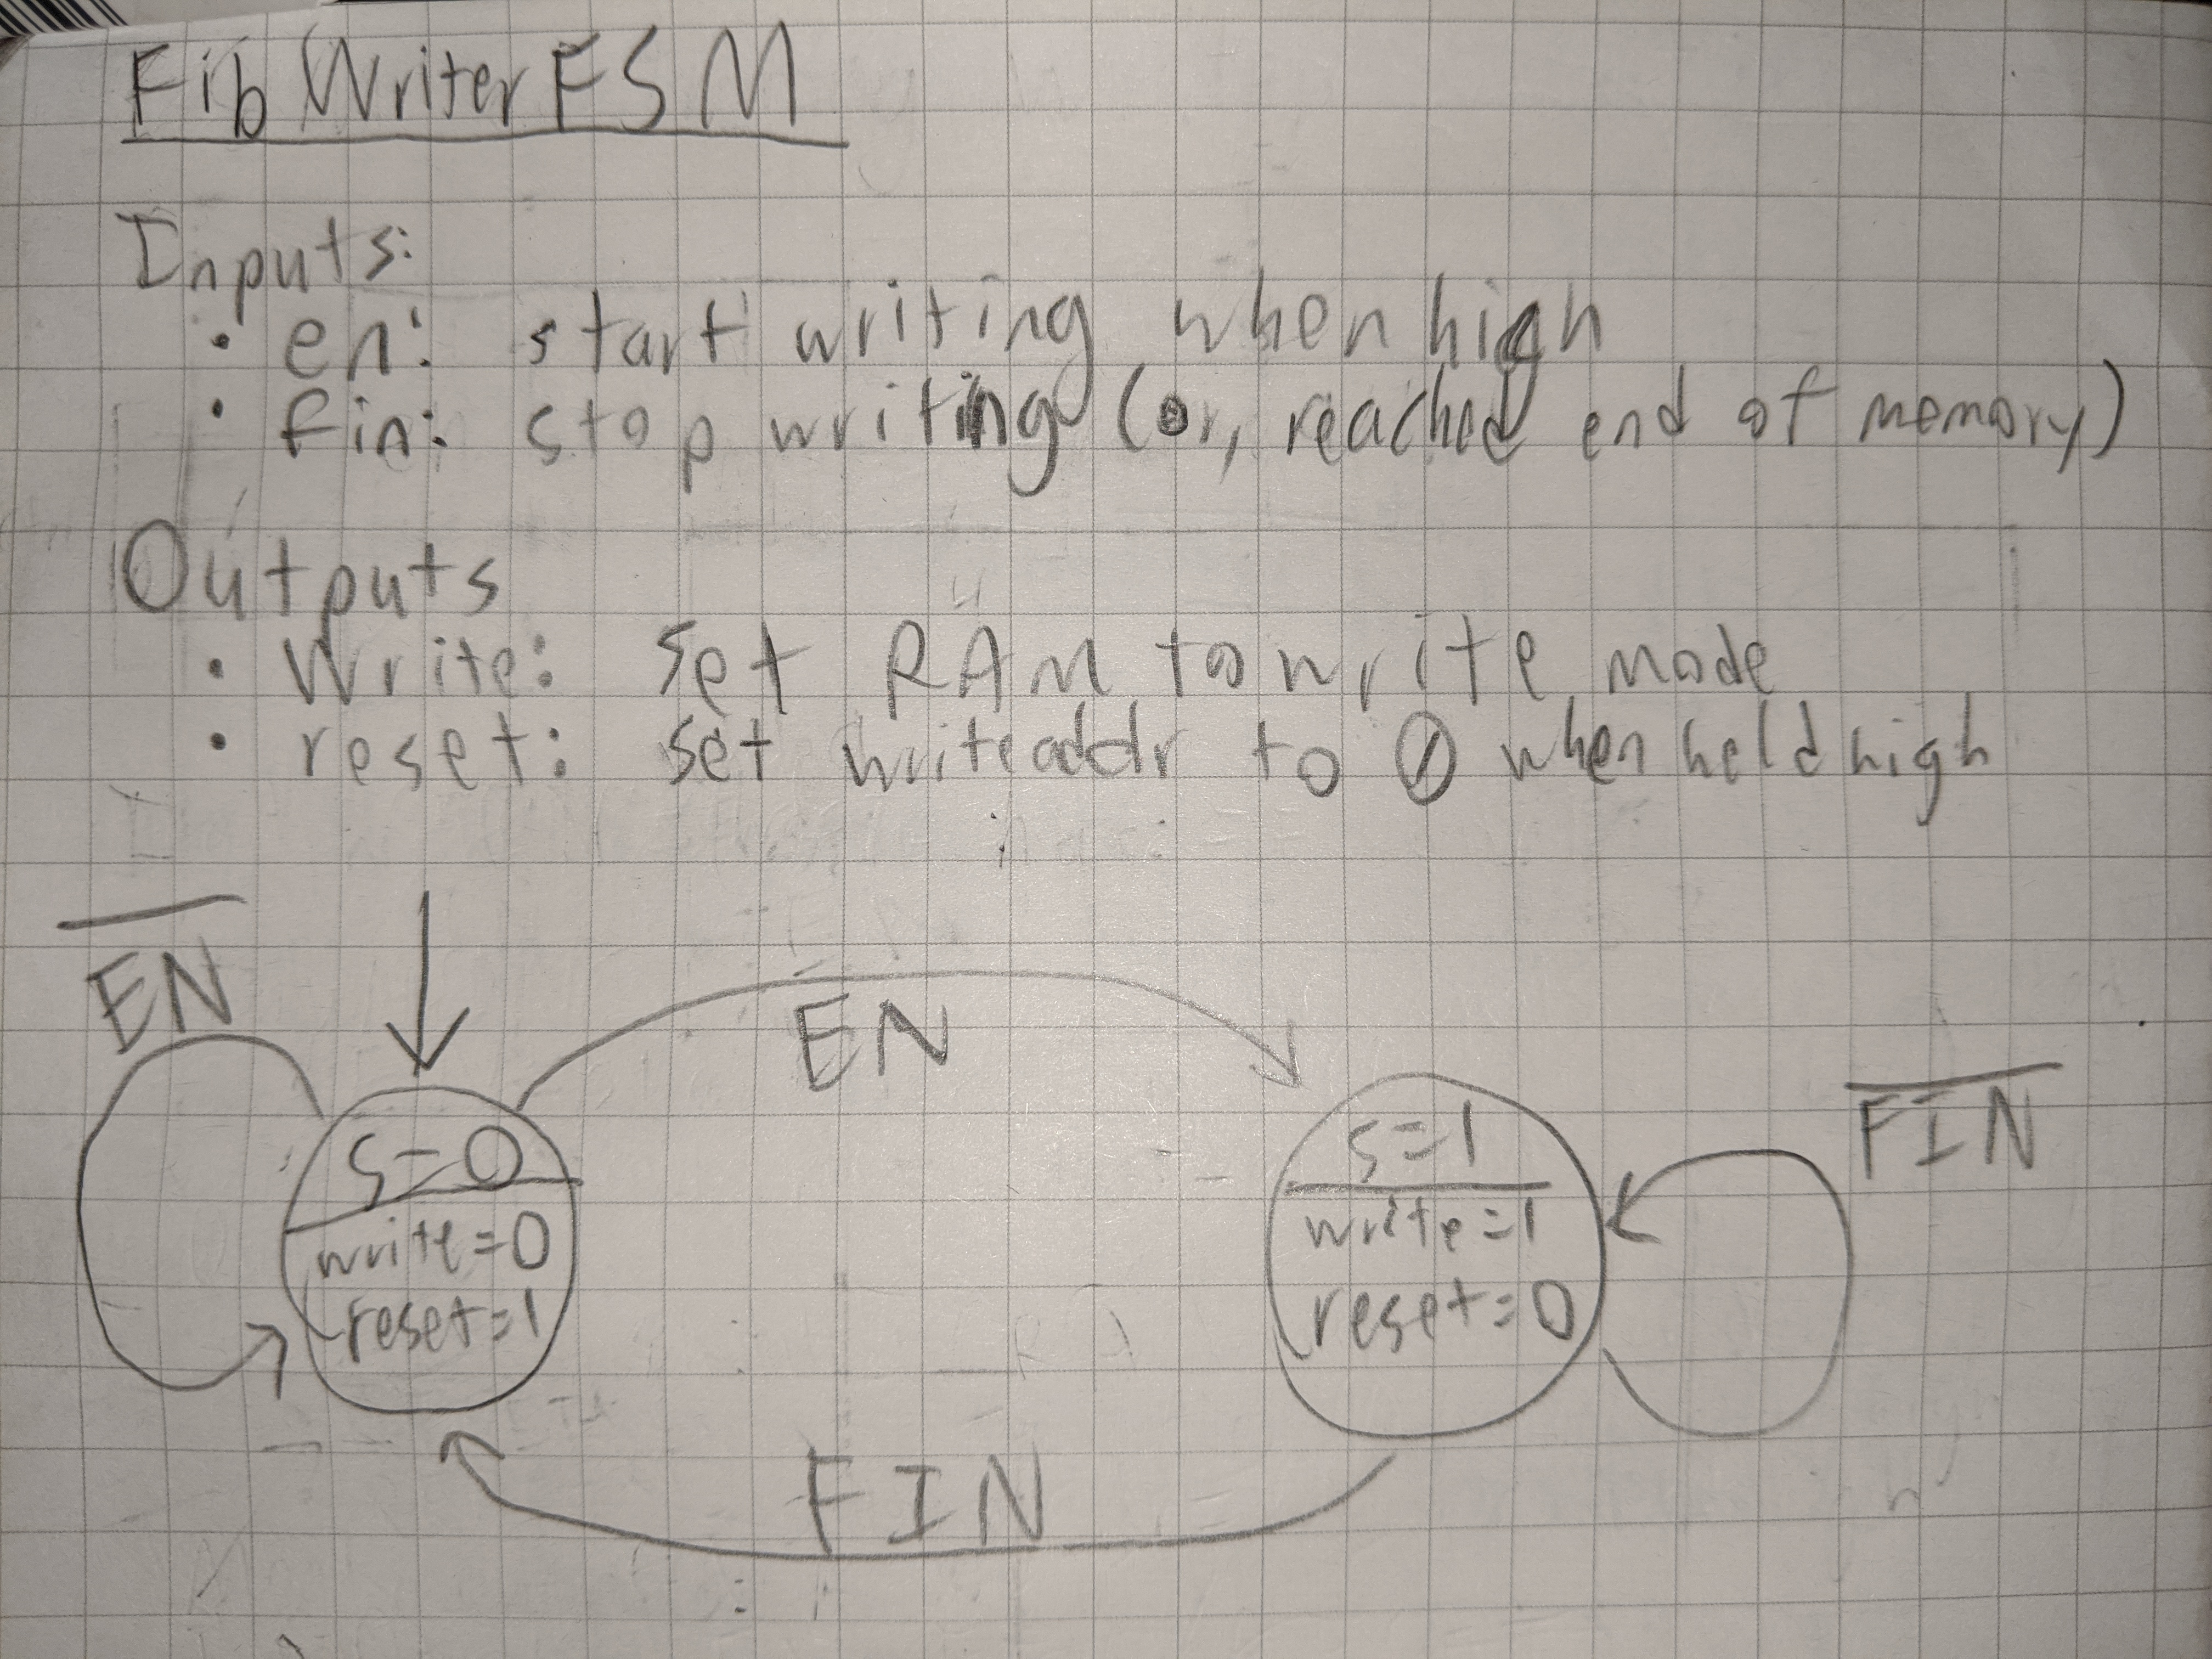 Fib Writer FSM
Inputs:
• en: start writing when high
• fin: stop writing (or, reached end of memory)
Outputs
• Write: set RAM to write mode
• reset: set writeaddr to 0 when held high
E̅N̅
EN
F̅I̅N̅
s=0
write=0
reset=1
s=1
write=1
reset=0
FIN